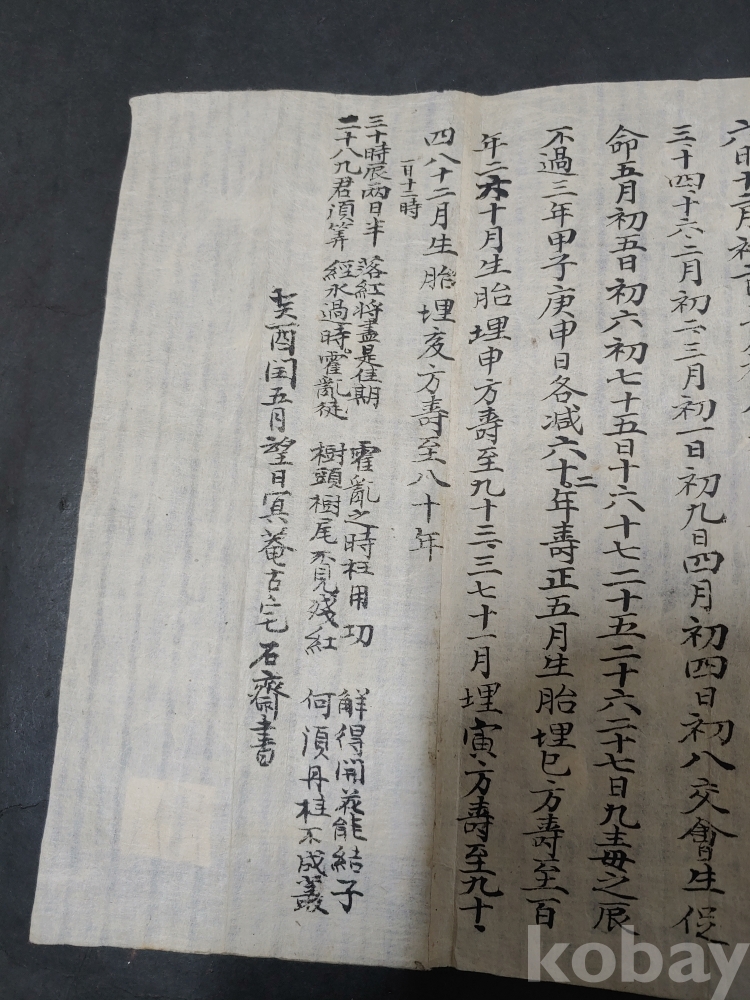 六時十二月初二日
三、十四、十六、二月初二、三月初一日初九日四月初四日初八交會生促
命五月初五日初六初七十五日十六十七二十五二十六二十七日九毒之辰
不過三年甲子庚申日各減六十二年壽正五月生胎埋巳方壽至一百
年二六十月生胎埋申方壽至九十三、三七十一月埋寅方壽至九十、
四八十二月生胎埋亥方壽至八十年
一日十二時
三十時辰兩日半 落紅將盡是佳期 霍亂之時枉用切 解得開花能結子
二十八九君須筭 經水過時霍亂徒 樹頭樹尾不見殘紅 何須丹桂不成叢
癸酉閏五月望日冥菴古宅石齋書
kobay